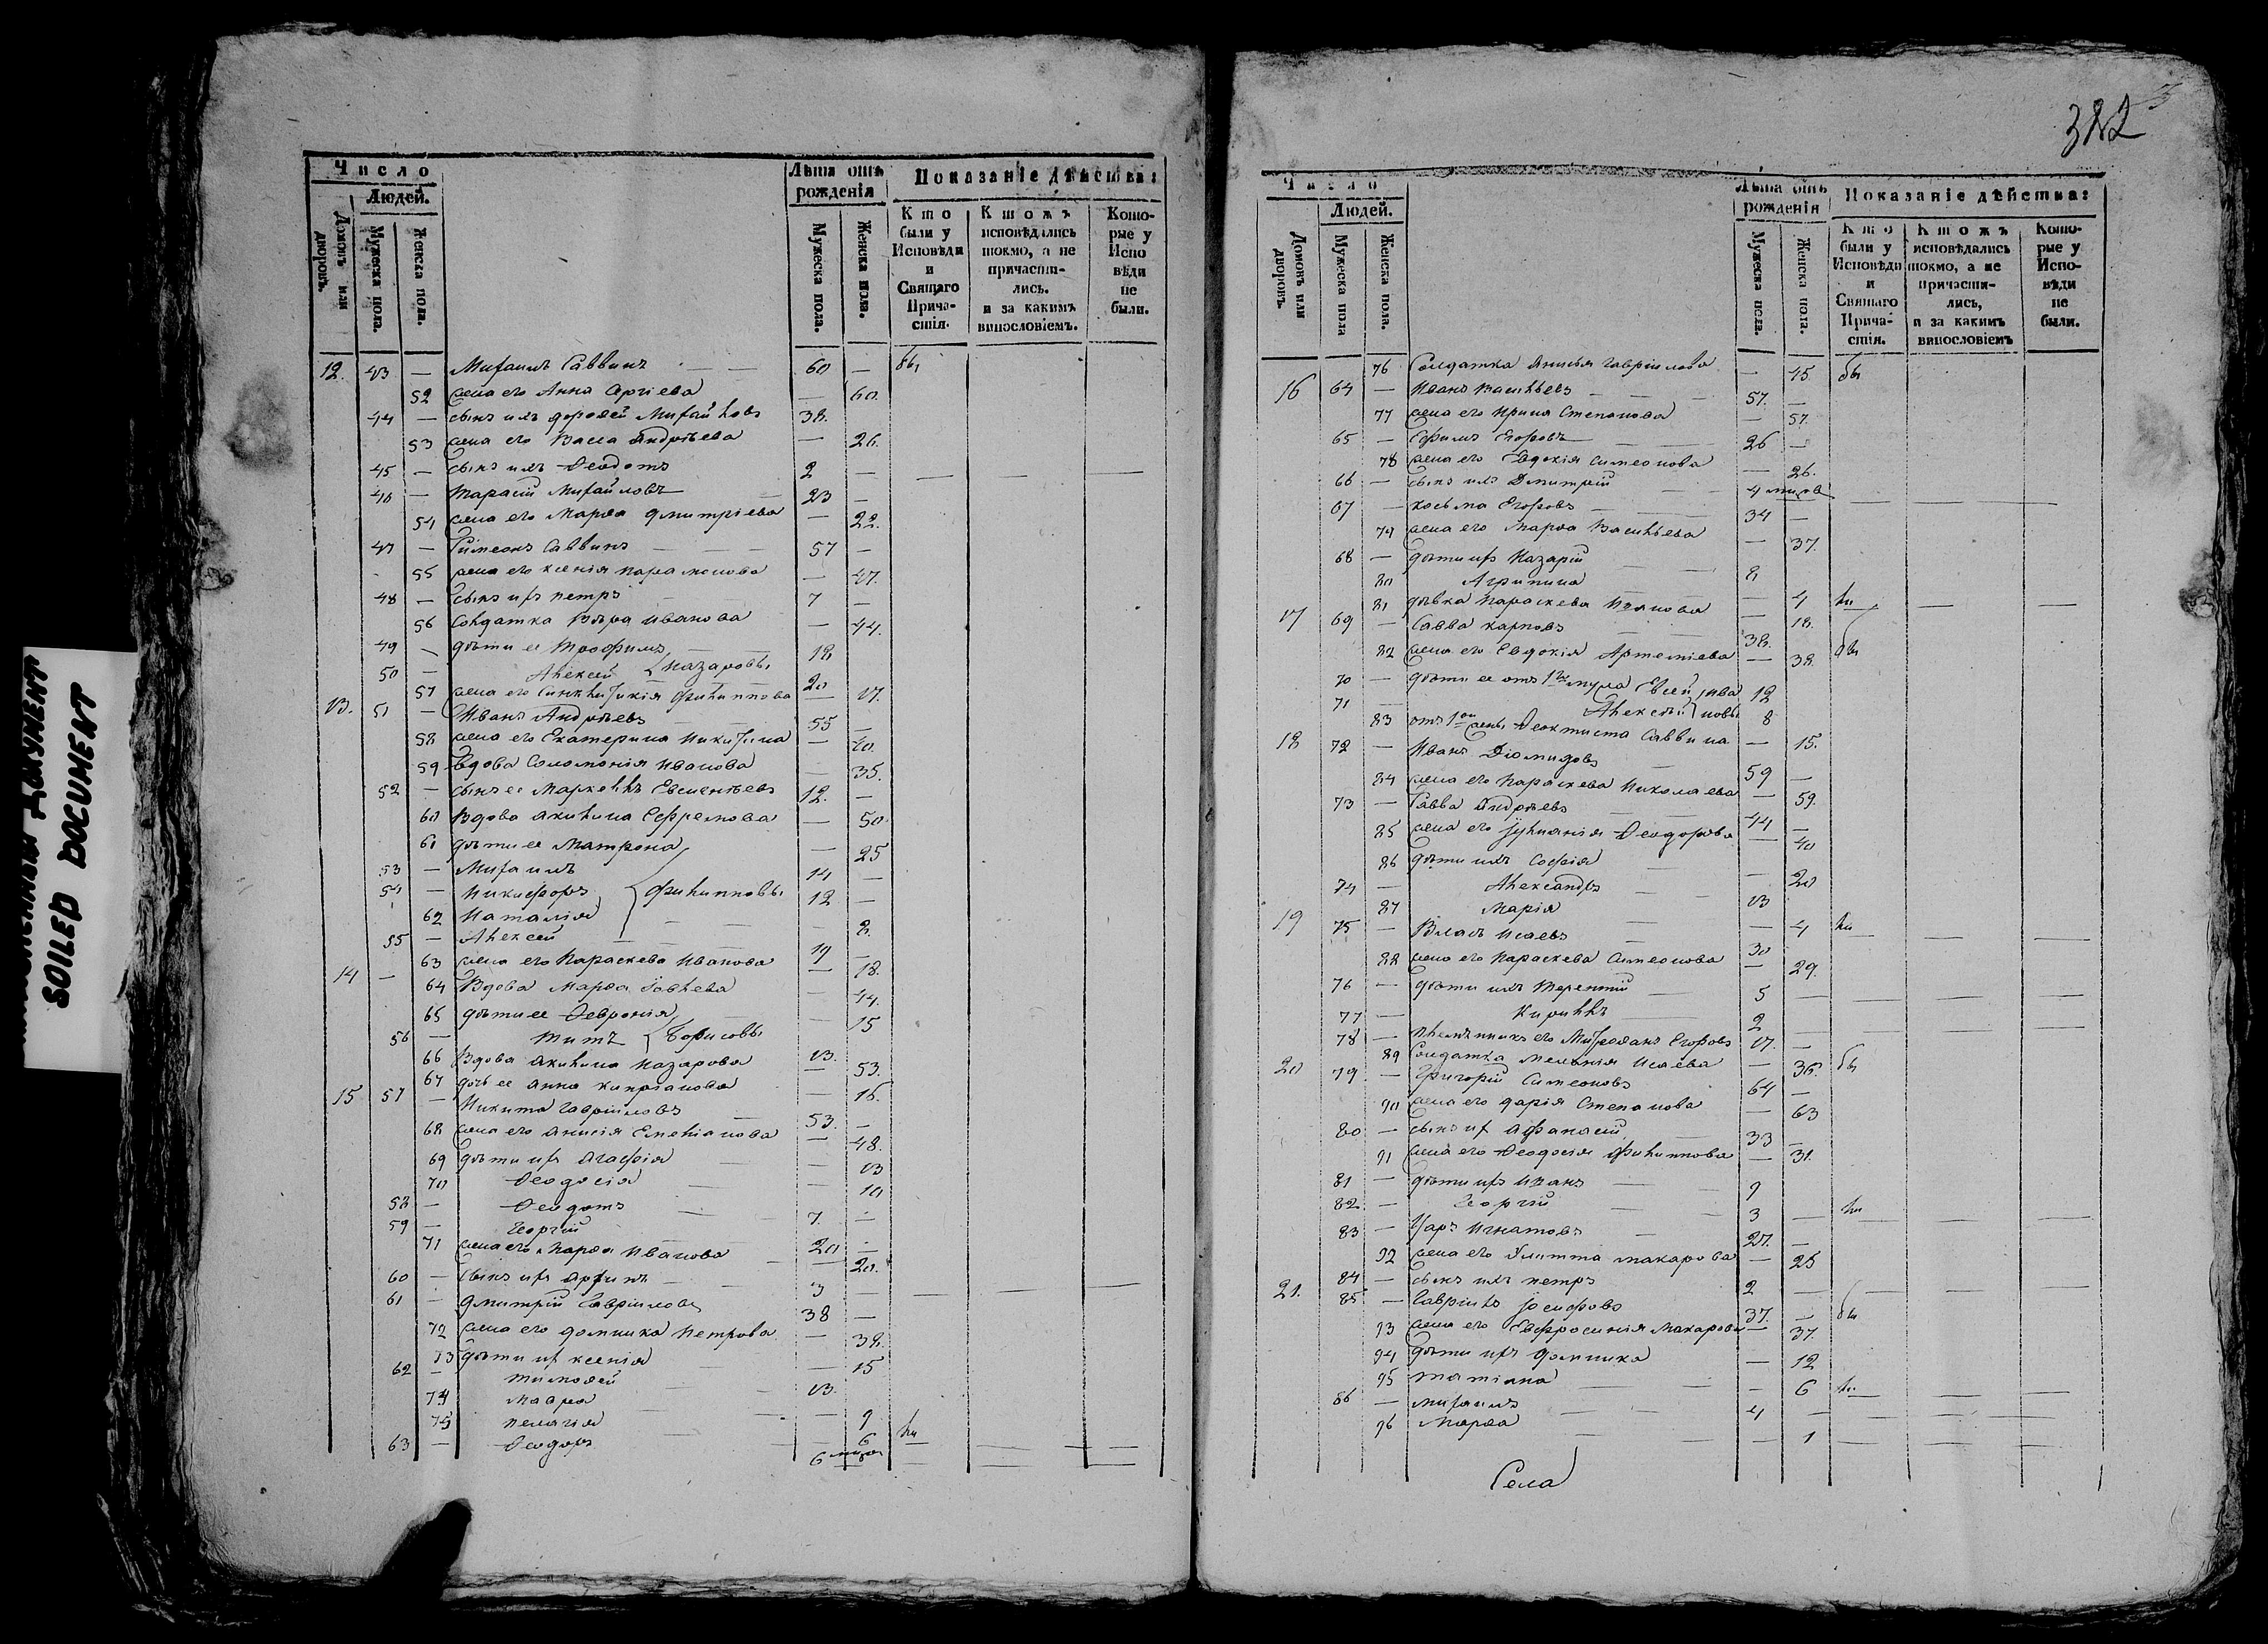 ДОКУМЕНТ
SOILED DOCUMENT
Число
Людей.
Домовъ или дворовъ.
Мужеска пола.
Женска пола.
Лѣта отъ рожденія
Мужеска пола.
Женска пола.
Показаніе дѣйства:
Кто были у Исповѣди и Святаго Прича-стія.
Ктожъ исповѣдались токмо, а не причасти-лись. и за какимъ винословіемъ.
Кото-рые у Испо вѣди не были.
12. 43 — Михаилъ Саввинъ 60 — бы
52 жена его Анна Сергіева — 60.
44 — сынъ ихъ Дороѳей Михайловъ 38.
53 жена его Васса Андрѣева — 26.
45 — сынъ ихъ Ѳеодотъ 2 —
46 — Тарасій Михайловъ 23 —
54 жена его Марѳа Дмитріева — 22.
47 — Симеонъ Саввинъ 57 —
55 жена его Ксенія Парамонова — 47.
48 — сынъ ихъ Петръ 7 —
56 Солдатка Вѣра Иванова — 44.
49 — дѣти ее Трофимъ 18
50 — Алексей } Назаровы 20
57 жена его Синклитикія Филиппова — 17.
13. 51 — Иванъ Андрѣевъ 55 —
58 жена его Екатерина Никитина — 40.
59 Вдова Соломонія Иванова — 35.
52 — сынъ ее Маркеллъ Евсигнѣевъ 12. —
60 Вдова Акилина Ефремова — 50.
61 дѣти ее Матрона — 25
53 — Михаилъ 14 —
54 — Никифоръ } Филипповы 12 —
62 Наталія — 8.
55 — Алексей 19 —
63 жена его Параскева Иванова — 18.
14 — 64 Вдова Марѳа Іовлева — 44.
65 дѣти ее Ѳевронія — 15
56 — Титъ } Борисовы 13.
66 Вдова Акилина Назарова — 53.
67 дочь ее Анна Кипріанова — 16.
15 57 — Никита Гавриловъ 53. —
68 жена его Анисія Емеліанова — 48.
69 дѣти ихъ Агафія — 13
70 Ѳеодосія — 10
58 — Ѳеодотъ 7. —
59 — Георгій 20 —
71 жена его Марѳа Иванова — 20.
60 — сынъ ихъ Архипъ 3 —
61 — Дмитрій Гавриловъ 38 —
72 жена его Домника Петрова — 38.
73 дѣти их Ксенія — 15
62 — Тимоѳей 13.
74 Мавра — 9
75 Пелагія — 6 ли
63 — Ѳеодоръ 6 мцов
382
Число
Людей.
Домовъ или дворовъ.
Мужеска пола
Женска пола.
Лѣта отъ рожденія
Мужеска пола.
Женска пола.
Показаніе дѣйства:
Кто были у Исповѣди и Святаго Прича-стія.
Ктожъ исповѣдались токмо, а не причасти-лись, и за какимъ винословіемъ
Кото-рые у Испо-вѣди не были.
76 Солдатка Анисья Гаврилова — 45 бы
16 64 — Иванъ Васильевъ 57. —
77 жена его Ирина Степанова — 57.
65 — Ефимъ Егоровъ 26 —
78 жена его Евдокія Симеонова — 26.
66 — сынъ ихъ Дмитрій 4 мцов
67 — Косьма Егоровъ 34 —
79 жена его Марѳа Васильева — 37.
68 — дѣти их Назарій 8
80 Агрипина — 4 ли
81 дѣвка Параскева Иванова — 18.
17 69 — Савва Карповъ 38. бы
82 жена его Евдокія Артеміева — 38.
70 — дѣти ее отъ 1го мужа Евсей 12
71 — Алексѣй } новы 8
83 отъ 1ой жены Ѳеоктиста Саввина — 15.
18 72 — Иванъ Діомидовъ 59 —
84 жена его Параскева Николаева — 59.
73 — Савва Андрѣевъ 44 —
85 жена его Іуліанія Ѳеодорова — 40
86 дѣти ихъ Софія — 20
74 — Александръ 13
87 Марія — 4 ли
19 75 — Власъ Исаевъ 30
88 жена его Параскева Симеонова — 29.
76 — дѣти ихъ Терентій 5 —
77 — Кириллъ 2 —
78 — племянникъ его Митрофанъ Егоровъ 17. —
89 Солдатка Меланія Исаева — 36. бы
20 79 — Григорій Симеоновъ 64 —
90 жена его Дарія Степанова — 63
80 — сынъ их Афанасій 33 —
91 жена его Ѳеодосія Филиппова — 31.
81 — дѣти ихъ Иванъ 9
82 — Георгій 3 — ли
83 — Уаръ Игнатовъ 27. —
92 жена его Улитта Макарова — 25
84 — сынъ ихъ Петръ 2 —
21. 85 — Гавріилъ Іосифовъ 37. — бы
93 жена его Евфросинія Макарова — 37.
94 дѣти ихъ Домника — 12
95 Татіана — 6 ли
86 — Михаилъ 4 —
96 Марѳа — 1
Села